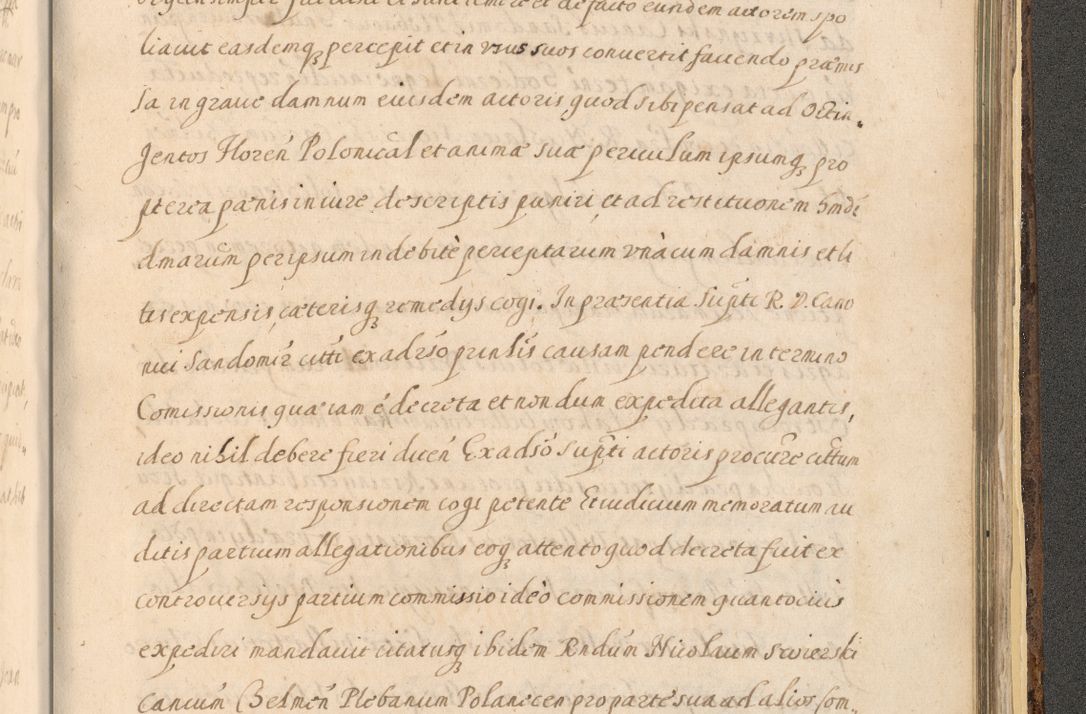 et de facto eundem actorem spo
liavit easdemq percepit et in usus suos convertit favendo præmis
sa in grave damnum eiusdem actoris quod sibi pensat ad Octin„
gentos Floren Polonical et animæ suæ periculum ipsumq pro
pterea pænis in iure descriptis puniri et ad restitutionem
dmarum per ipsum indebitè perceptarum vnàcum damnis et li
tis expensis cæterisq remedys cogi. In præsentia Supti R. D. Cano
nici Sandomir citti ex adrso prinlis causam pendere in termino
Comissionis quæ iam è decreta et nondum expedita allegantis,
ideo nihil debere fieri dicen Ex adso supti actoris procure cittum
ad directam responsionem cogi petente Et iudicium memoratum au
ditis partium allegationibus eoq attento quod decreta fuit ex
controversys partium commissio ideò commissionem quantocius
expediri mandavit citatusq ibidem Rndum Nicolaum Swierski
Cancum Belmen Plebanum Polanecen pro parte sua ad alios com„